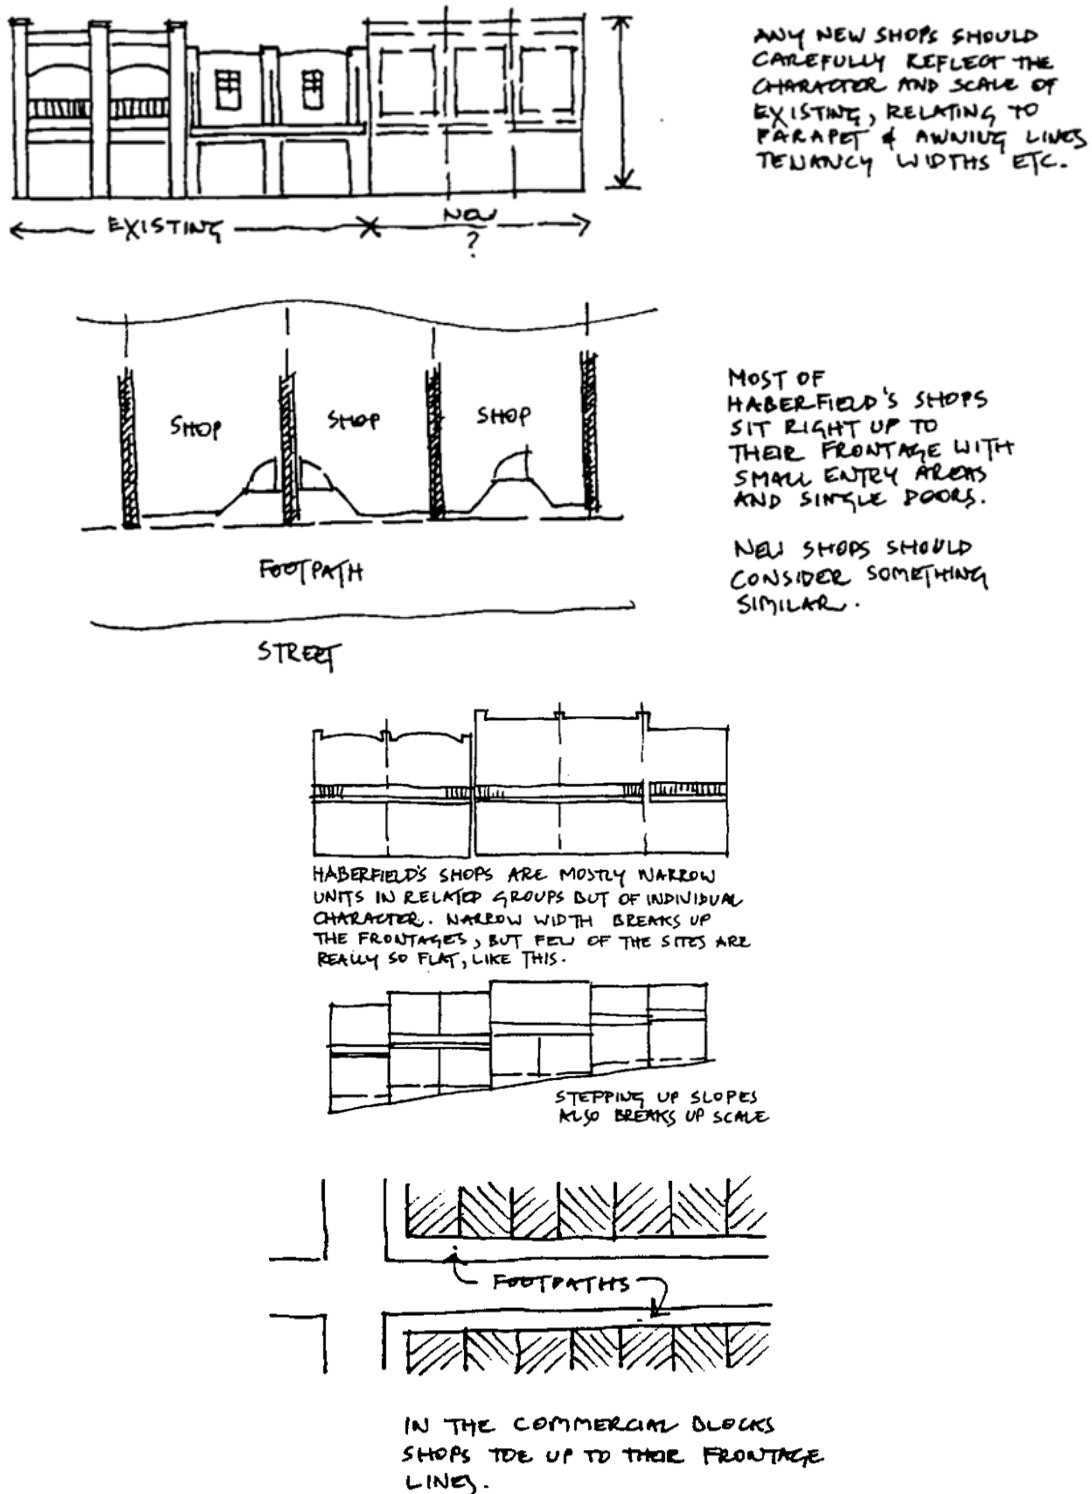 ANY NEW SHOPS SHOULD
CAREFULLY REFLECT THE
CHARACTER AND SCALE OF
EXISTING, RELATING TO
PARAPET & AWNING LINES
TENANCY WIDTHS ETC.
EXISTING
NEW
?
SHOP
SHOP
SHOP
FOOTPATH
STREET
MOST OF
HABERFIELD'S SHOPS
SIT RIGHT UP TO
THEIR FRONTAGE WITH
SMALL ENTRY AREAS
AND SINGLE DOORS.
NEW SHOPS SHOULD
CONSIDER SOMETHING
SIMILAR.
HABERFIELD'S SHOPS ARE MOSTLY NARROW
UNITS IN RELATED GROUPS BUT OF INDIVIDUAL
CHARACTER. NARROW WIDTH BREAKS UP
THE FRONTAGES, BUT FEW OF THE SITES ARE
REALLY SO FLAT, LIKE THIS.
STEPPING UP SLOPES
ALSO BREAKS UP SCALE
FOOTPATHS
IN THE COMMERCIAL BLOCKS
SHOPS TOE UP TO THEIR FRONTAGE
LINES.